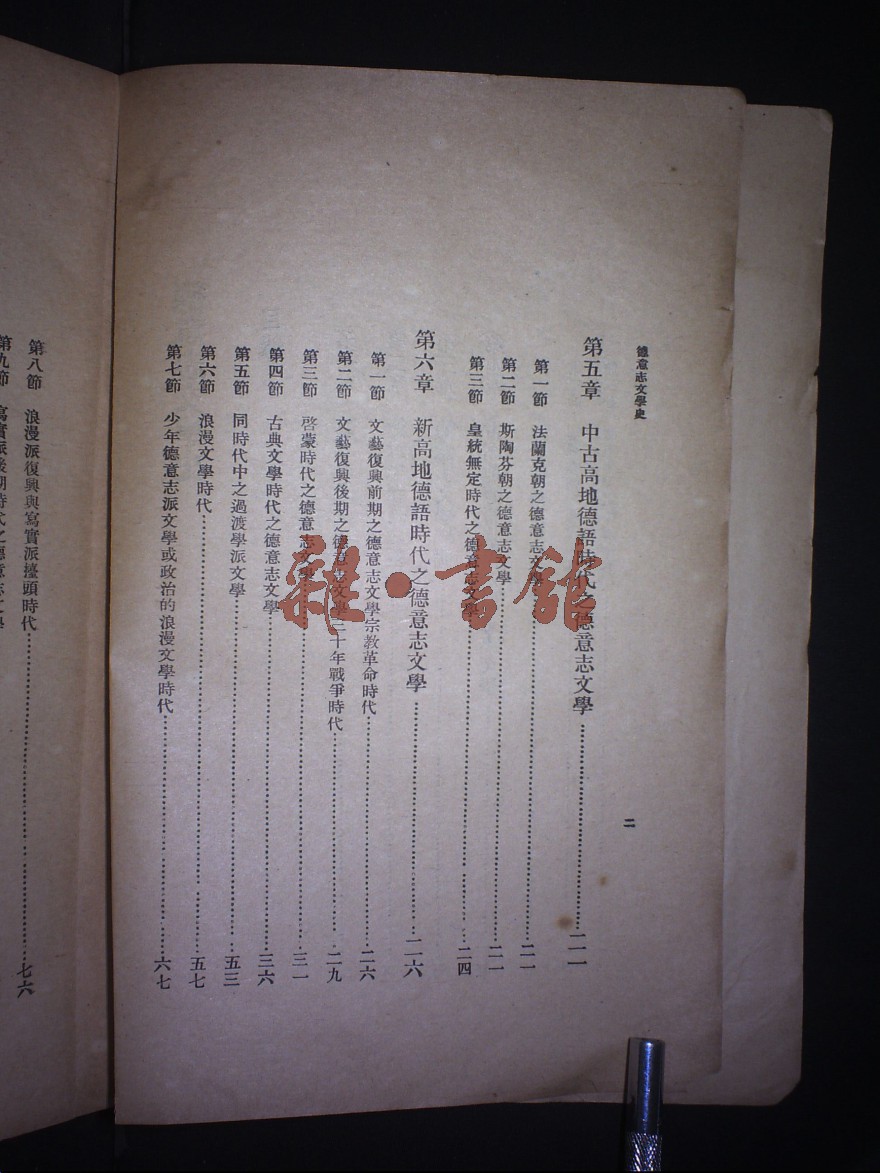 德意志文學史
二
第五章 中古高地德語時代之德意志文學……二一
第一節 法蘭克朝之德意志文學……二一
第二節 斯陶芬朝之德意志文學……二一
第三節 皇統無定時代之德意志文學……二四
第六章 新高地德語時代之德意志文學……二六
第一節 文藝復興前期之德意志文學宗教革命時代……二六
第二節 文藝復興後期之德意志文學三十年戰爭時代……二九
第三節 啓蒙時代之德意志文學……三一
第四節 古典文學時代之德意志文學……三六
第五節 同時代中之過渡學派文學……五三
第六節 浪漫文學時代……五七
第七節 少年德意志派文學或政治的浪漫文學時代……六七
第八節 浪漫派復興與寫實派擡頭時代……七六
第九節 寫實派後期時代之德意志文學
雜·書館